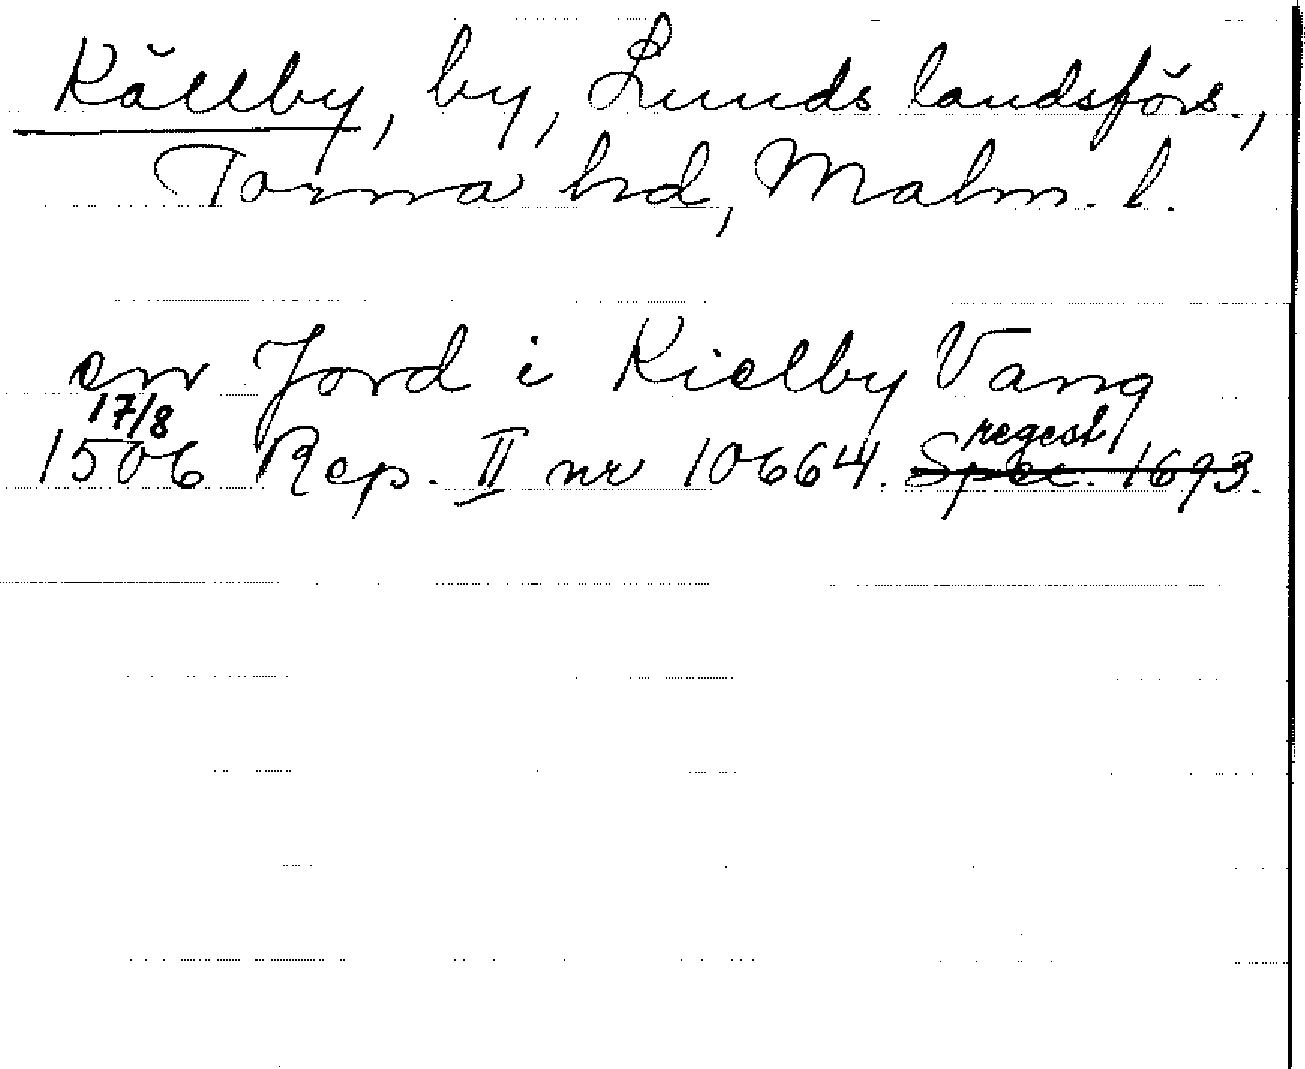 Källby, by, Lunds landsförs.,
Torna hd, Malm. l.
en Jord i Kielby Vang
17/8
1506 Rep. II nr 10664. Spec. 1693.
regest